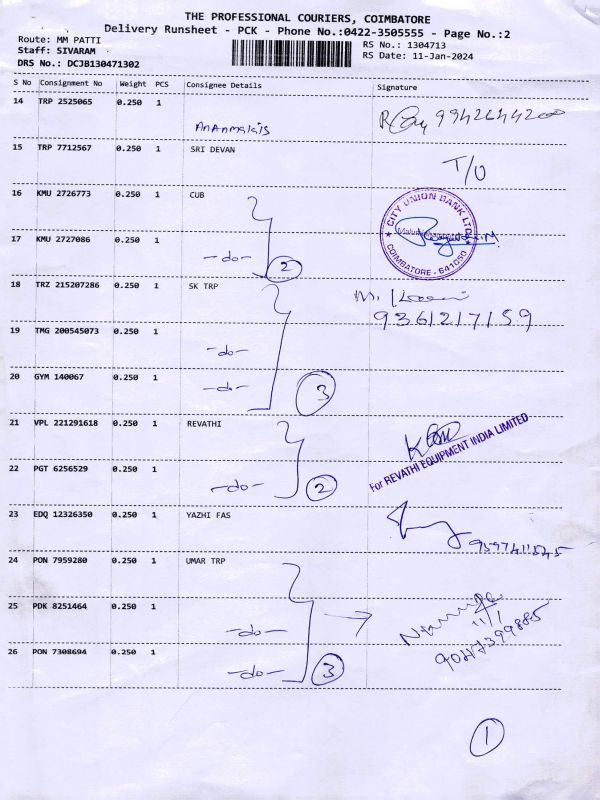 THE PROFESSIONAL COURIERS, COIMBATORE
Delivery Runsheet - PCK - Phone No.:0422-3505555 - Page No.:2
Route: MM PATTI
Staff: SIVARAM
DRS No.: DCJB130471302
RS No.: 1304713
RS Date: 11-Jan-2024
S No Consignment No Weight PCS Consignee Details Signature
14 TRP 2525065 0.250 1
9942644200
15 TRP 7712567 0.250 1 SRI DEVAN
T/O
16 KMU 2726773 0.250 1 CUB
CITY UNION BANK LTD.
COIMBATORE - 641050
17 KMU 2727086 0.250 1 -do- 2
18 TRZ 215207286 0.250 1 SK TRP
9361217159
19 TMG 200545073 0.250 1 -do-
20 GYM 140067 0.250 1 -do- 3
21 VPL 221291618 0.250 1 REVATHI
For REVATHI EQUIPMENT INDIA LIMITED
22 PGT 6256529 0.250 1 -do- 2
23 EDQ 12326350 0.250 1 YAZHI FAS
24 PON 7959280 0.250 1 UMAR TRP
11/1
25 PDK 8251464 0.250 1 -do-
26 PON 7308694 0.250 1 -do- 3
1